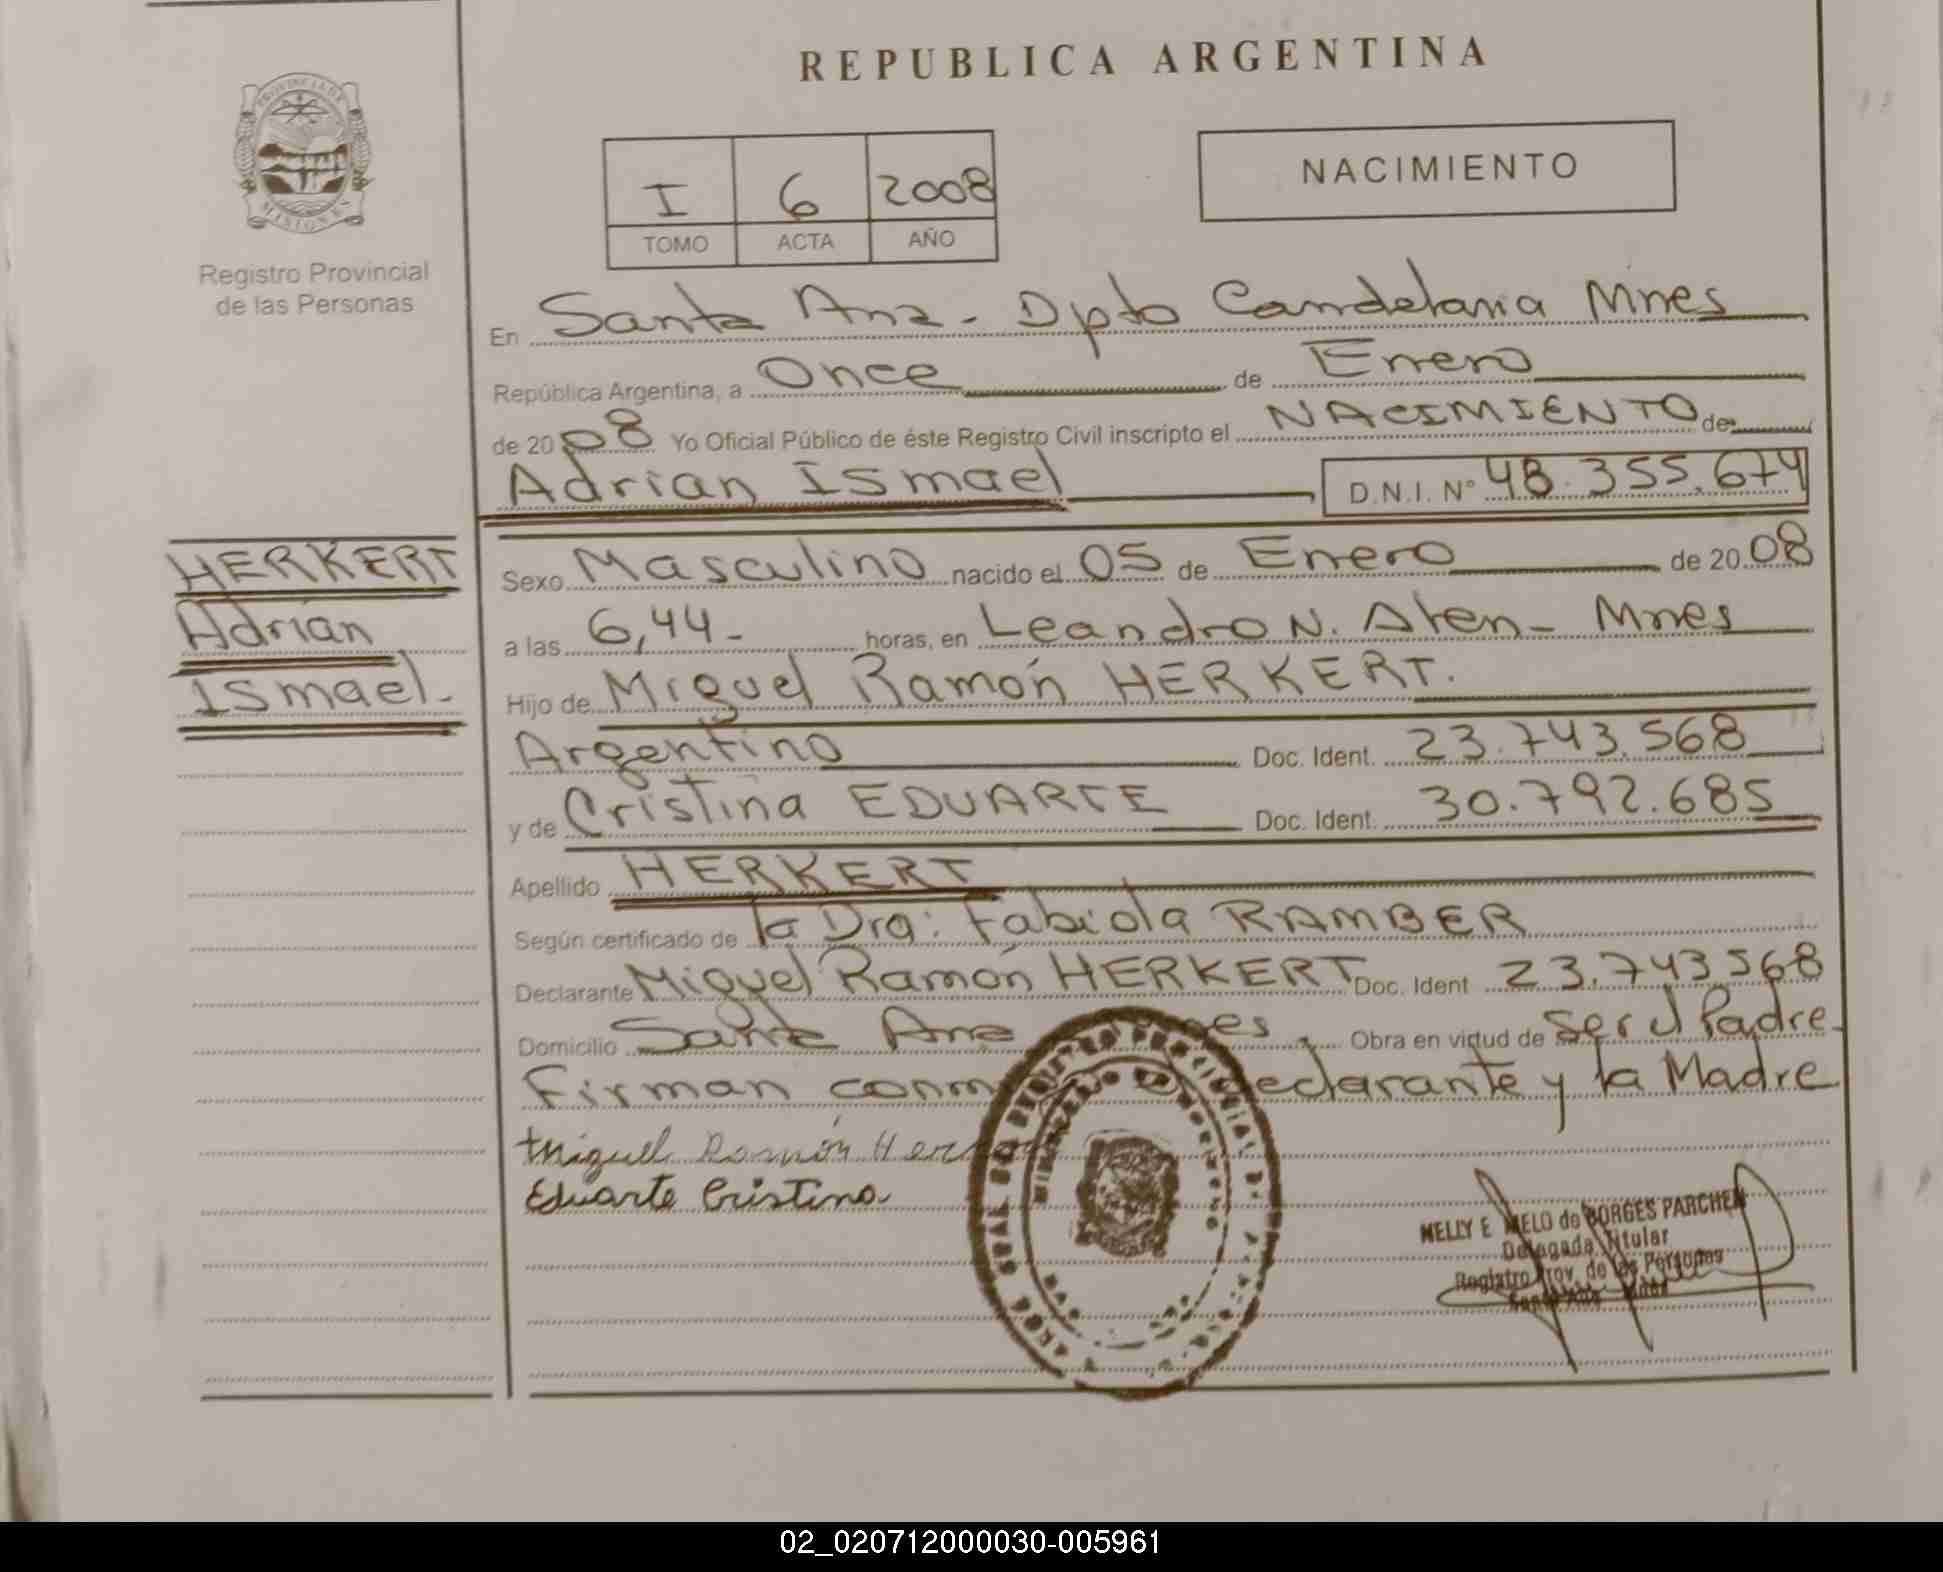 REPUBLICA ARGENTINA
PROVINCIA DE
MISIONES
Registro Provincial
de las Personas
I 6 2008
TOMO ACTA AÑO
NACIMIENTO
En Santa Ana - Dpto Candelaria Mnes
República Argentina, a Once de Enero
de 2008 Yo Oficial Público de éste Registro Civil inscripto el NACIMIENTO de
Adrian Ismael D.N.I. Nº 48.355.674
HERKERT
Adrian
Ismael.-
Sexo Masculino nacido el 05 de Enero de 2008
a las 6,44- horas, en Leandro N. Alen - Mnes
Hijo de Miguel Ramón HERKERT.
Argentino Doc. Ident. 23.743.568
y de Cristina EDUARTE Doc. Ident. 30.792.685
Apellido HERKERT
Según certificado de la Dra: Fabiola RAMBER
Declarante Miguel Ramón HERKERT Doc. Ident 23.743568
Domicilio Santa Ana Obra en virtud de ser el Padre.
Firman declarante y la Madre
Miguel Ramón
Eduarte Cristina
NELLY E MELO de BORGES PARCHEN
Delegada Titular
Registro Prov. de las Personas
02_020712000030-005961